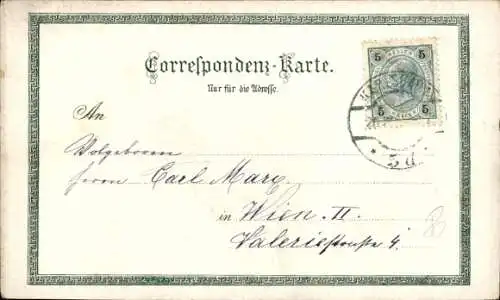 Correspondenz-Karte.
Nur für die Adresse.
5 5
5 5
An
Wolgeboren
Herrn Carl Marx
in Wien. II.
Valeriestrasse 4.